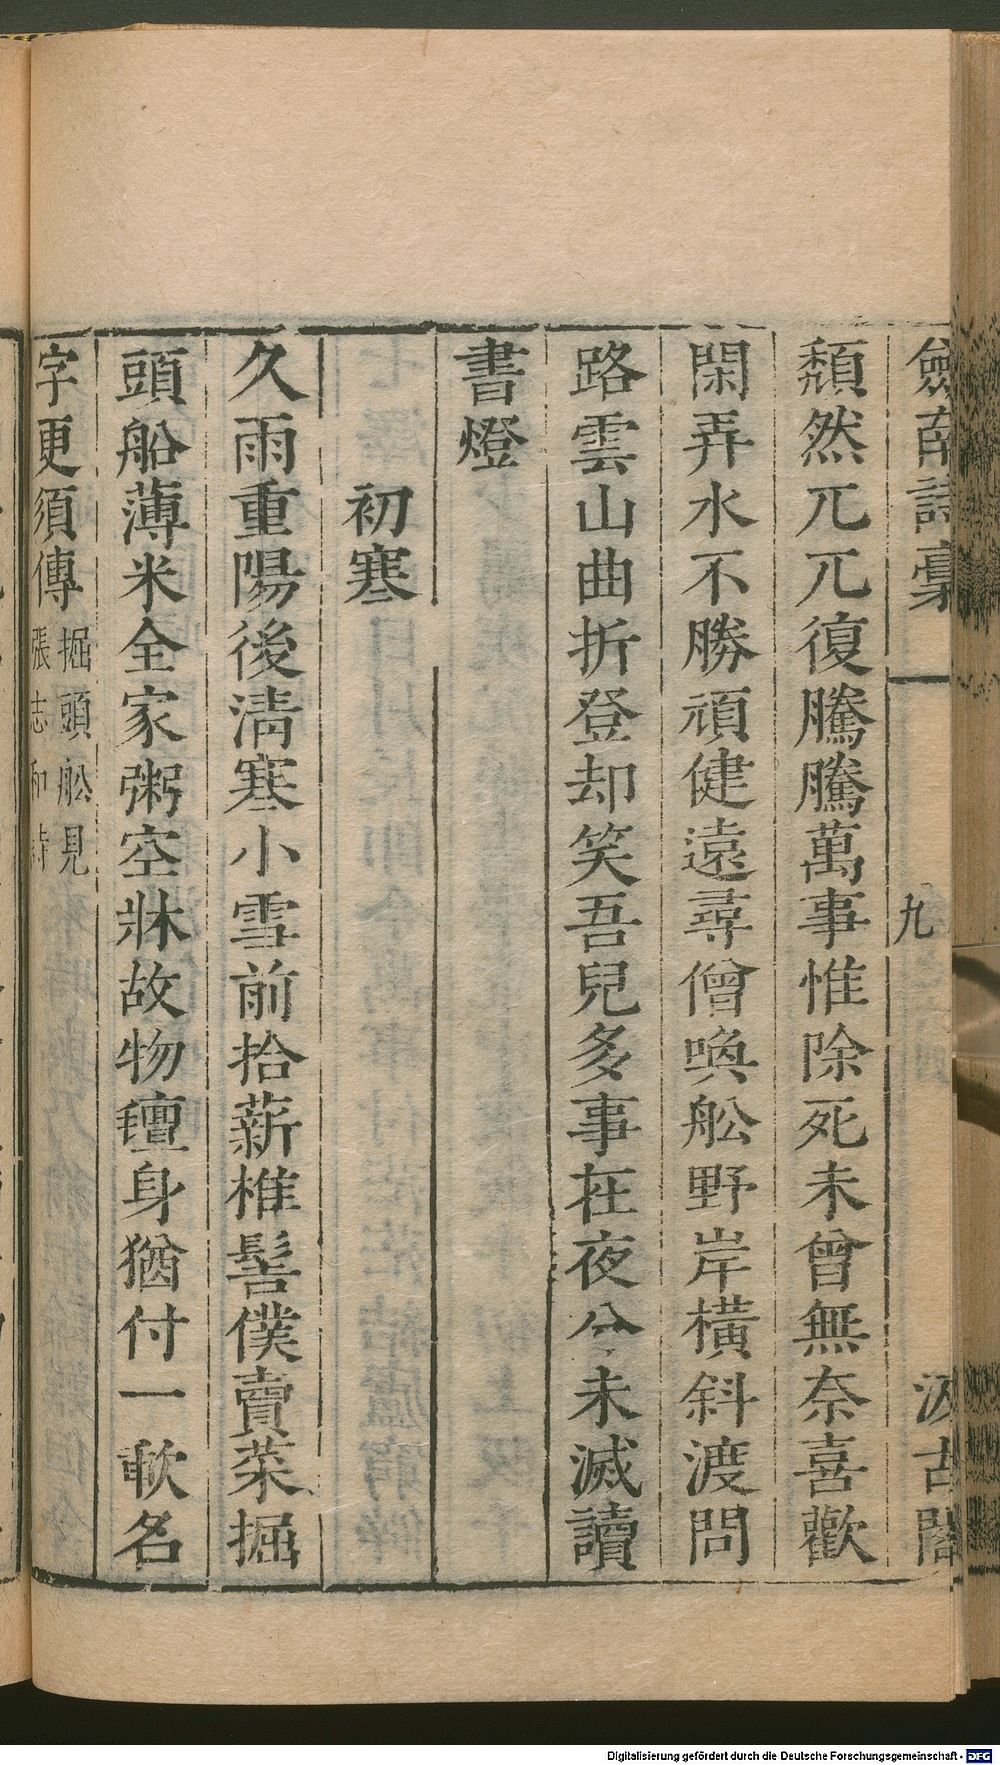 劍南詩稾 九 汲古閣
頽然兀兀復騰騰萬事惟除死未曾無奈喜歡
閑弄水不勝頑健遠尋僧喚舩野岸橫斜渡問
路雲山曲折登却笑吾兒多事在夜分未滅讀
書燈
初寒
久雨重陽後清寒小雪前拾薪椎髻僕賣菜掘
頭船薄米全家粥空牀故物氊身猶付一歃名
字更須傳
掘頭舩見
張志和詩
Digitalisierung gefördert durch die Deutsche Forschungsgemeinschaft - DFG